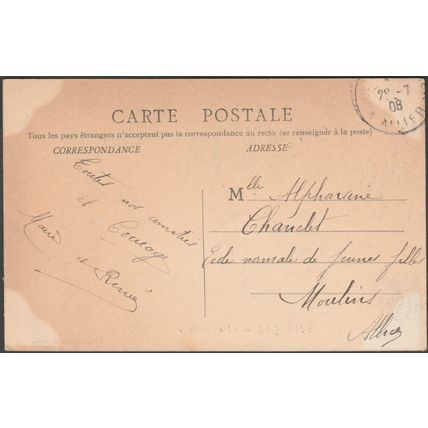 CARTE POSTALE
Tous les pays étrangers n'acceptent pas la correspondance au recto (se renseigner à la poste)
CORRESPONDANCE
ADRESSE
Toutes nos amitiés
et Courage
Marie et René
Mlle Alphonsine
Chaudet
Ecole normale de jeunes filles
Moulins
Allier
28 -7
08
ALLIER